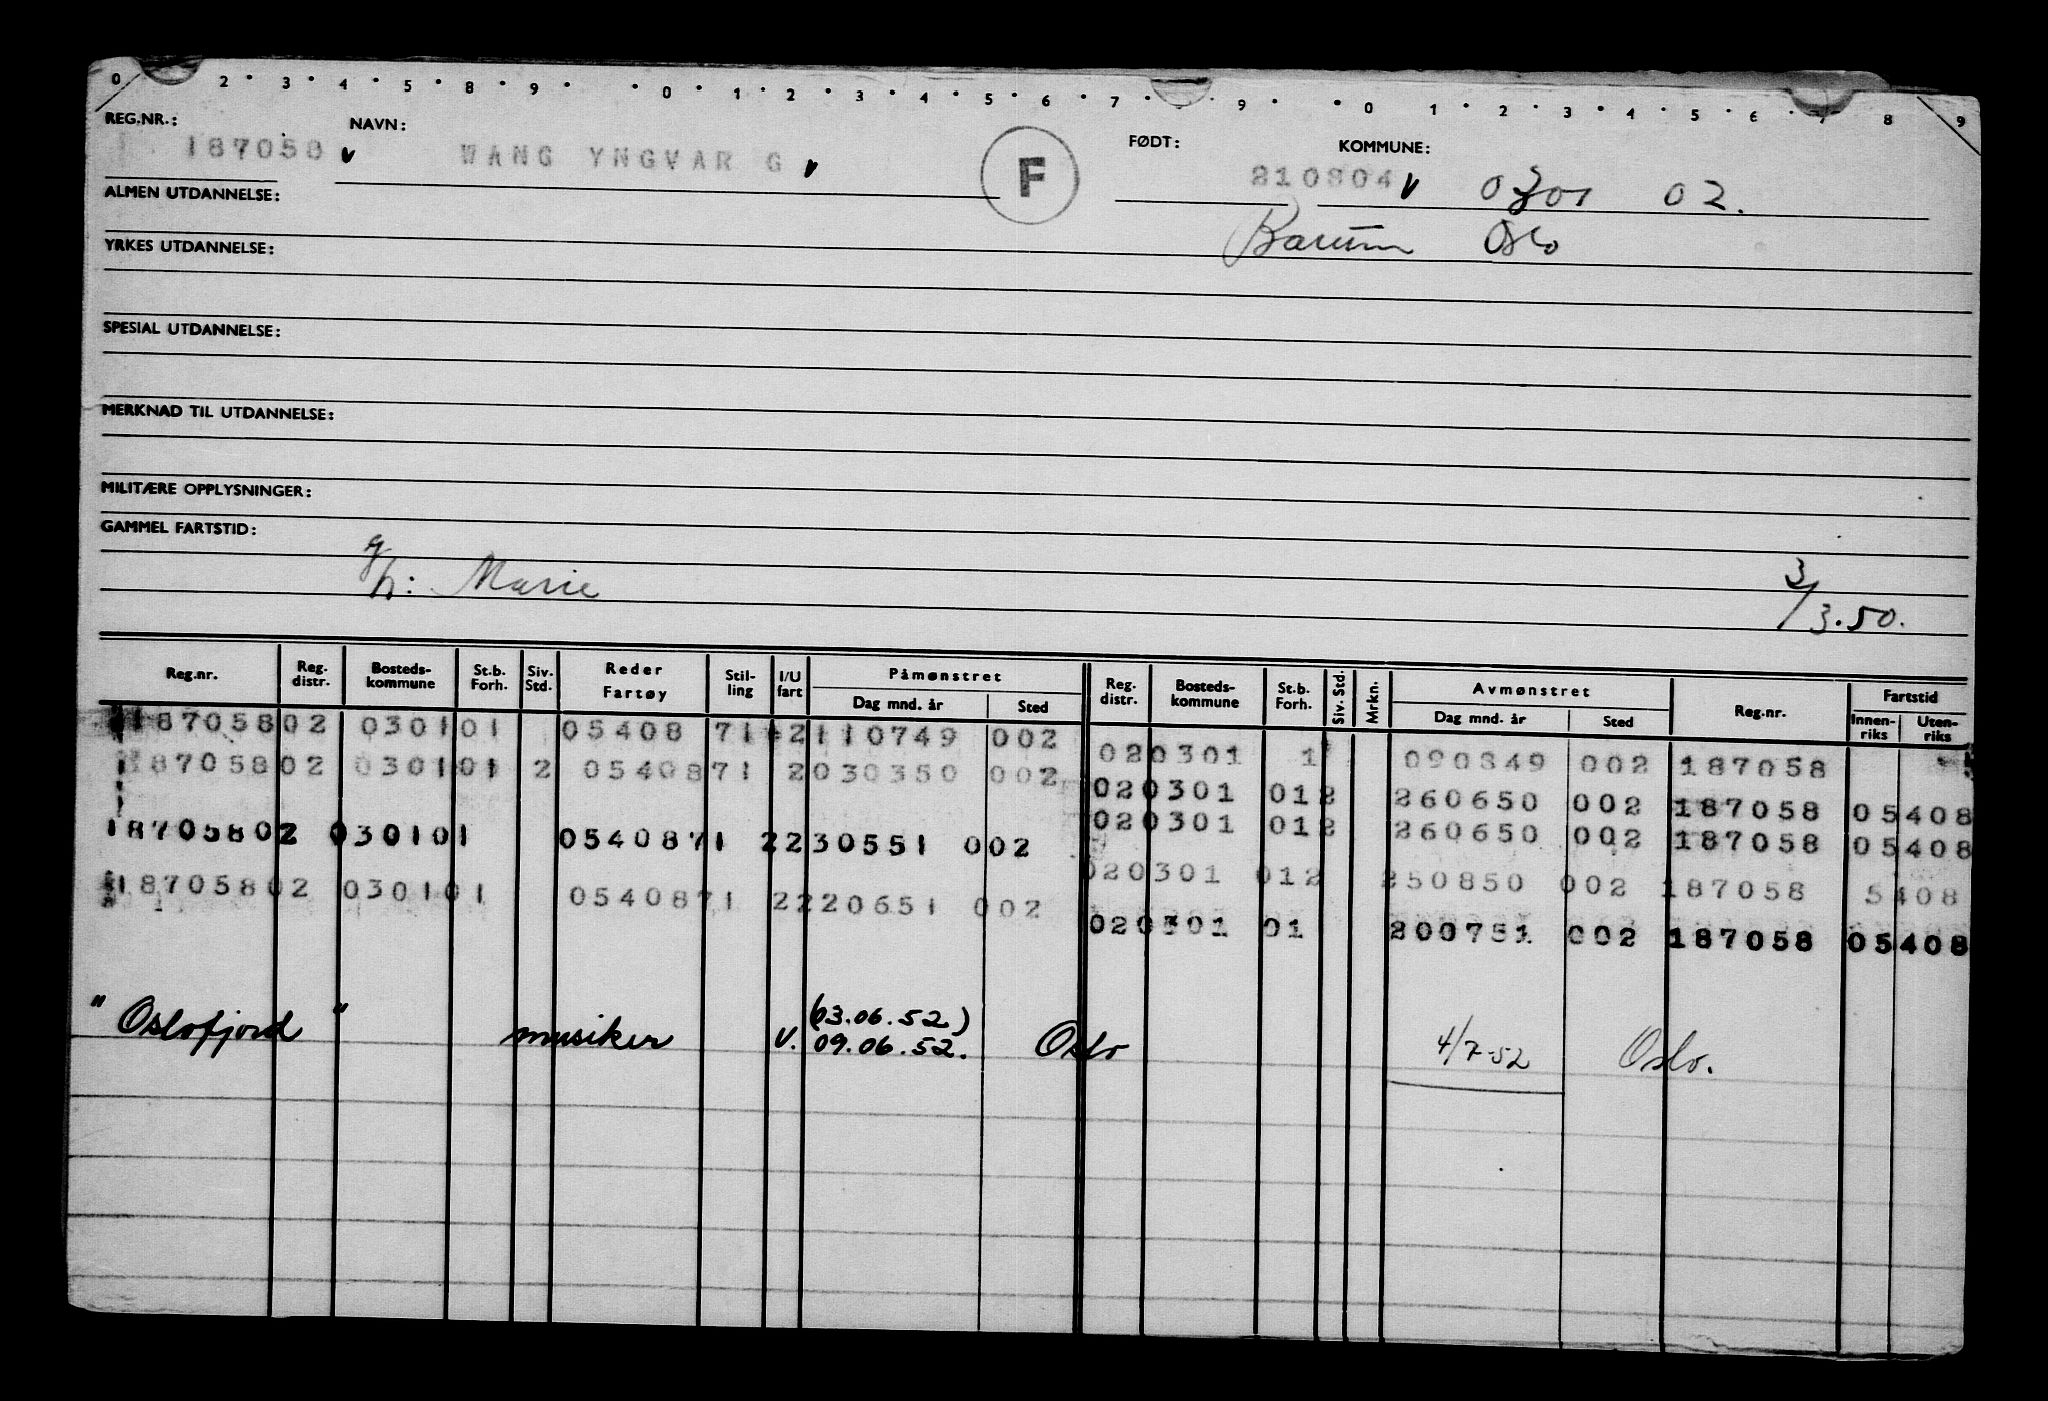 0 2 • 3 • 4 • 5 • 8 • 9 • • 0 • 1 • 2 • 3 • 4 • 5 • 6 • 7 • 9 • • 0 1 • 2 • 3 • 4 • 5 • 6 • 7 8 9
REG.NR.: NAVN: FØDT: KOMMUNE:
187058 v WANG YNGVAR G v F 210804 v 0301 02.
ALMEN UTDANNELSE:
Bærum Oslo
YRKES UTDANNELSE:
SPESIAL UTDANNELSE:
MERKNAD TIL UTDANNELSE:
MILITÆRE OPPLYSNINGER:
GAMMEL FARTSTID:
g/h: Marie 3/3.50.
Reg.nr. Reg. distr. Bosteds- kommune St.b. Forh. Siv. Std. Reder Fartøy Stil- ling I/U fart Påmønstret Dag mnd. år Sted Reg. distr. Bosteds- kommune St.b. Forh. Siv. Std. Mrkn. Avmønstret Dag mnd. år Sted Reg.nr. Fartstid Innen- riks Uten- riks
18705802 030101 05408 71 2110749 002
020301 1 090849 002 187058
18705802 030101 2 0540871 2030350 002
020301 012 260650 002 187058 05408
020301 012 260650 002 187058 05408
18705802 030101 0540871 2230551 002
020301 012 250850 002 187058 5408
18705802 030101 0540871 2220651 002
020301 01 200751 002 187058 05408
"Oslofjord" musiker U. (03.06.52) 09.06.52. Oslo 4/7-52 Oslo.